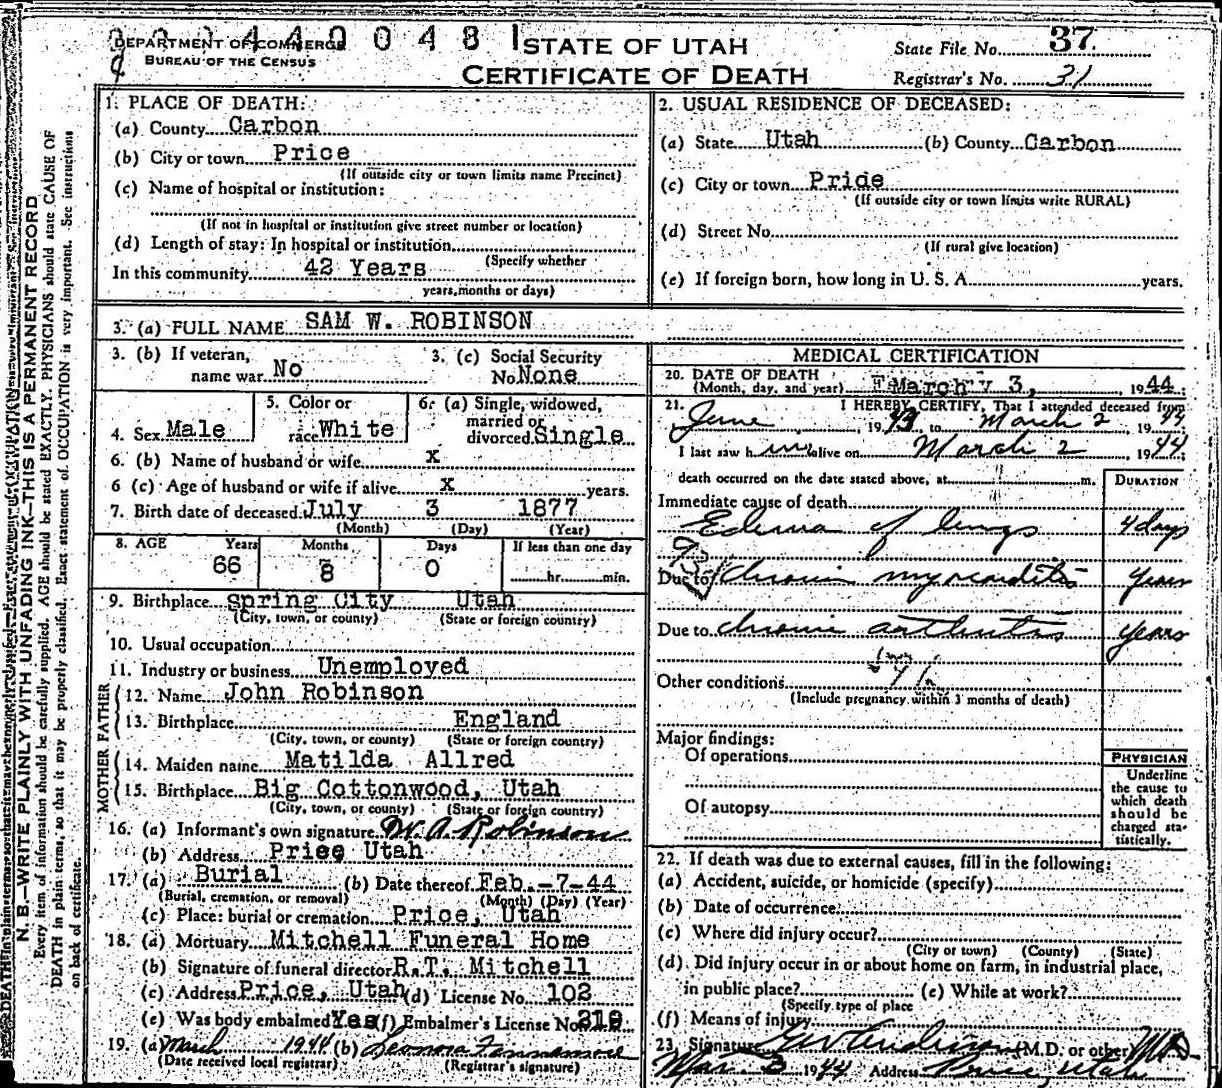 DEPARTMENT OF COMMERCE
BUREAU OF THE CENSUS
4 4 0 0 4 8 1
STATE OF UTAH
CERTIFICATE OF DEATH
State File No. 37.
Registrar's No. 31
1. PLACE OF DEATH:
(a) County Carbon
(b) City or town Price
(If outside city or town limits name Precinct)
(c) Name of hospital or institution:
(If not in hospital or institution give street number or location)
(d) Length of stay: In hospital or institution
(Specify whether
In this community 42 Years
years, months or days)
2. USUAL RESIDENCE OF DECEASED:
(a) State Utah (b) County Carbon
(c) City or town Price
(If outside city or town limits write RURAL)
(d) Street No.
(If rural give location)
(e) If foreign born, how long in U. S. A. years.
3. (a) FULL NAME SAM W. ROBINSON
3. (b) If veteran, name war No
3. (c) Social Security No. None
4. Sex Male
5. Color or race White
6. (a) Single, widowed, married or divorced Single
6. (b) Name of husband or wife x
6 (c) Age of husband or wife if alive x years.
7. Birth date of deceased July 3 1877
(Month) (Day) (Year)
8. AGE Years Months Days If less than one day
66 8 0 hr. min.
9. Birthplace Spring City Utah
(City, town, or county) (State or foreign country)
10. Usual occupation
11. Industry or business Unemployed
FATHER
12. Name John Robinson
13. Birthplace England
(City, town, or county) (State or foreign country)
MOTHER
14. Maiden name Matilda Allred
15. Birthplace Big Cottonwood, Utah
(City, town, or county) (State or foreign country)
16. (a) Informant's own signature W. A. Robinson
(b) Address Price Utah
17. (a) Burial (b) Date thereof Feb.-7-44
(Burial, cremation, or removal) (Month) (Day) (Year)
(c) Place: burial or cremation Price, Utah
18. (a) Mortuary Mitchell Funeral Home
(b) Signature of funeral director R.T. Mitchell
(c) Address Price, Utah (d) License No. 102
(e) Was body embalmed Yes (f) Embalmer's License No. 219
19. (a) March 1944 (b) Leonora Fennemore
(Date received local registrar) (Registrar's signature)
MEDICAL CERTIFICATION
20. DATE OF DEATH
(Month, day, and year) March 3, 1944
21. I HEREBY CERTIFY, That I attended deceased from
June 1943 to March 2 1944
I last saw him alive on March 2 1944
death occurred on the date stated above, at m.
DURATION
Immediate cause of death
Edema of lungs 4 days
Due to Chronic myocarditis years
Due to chronic arthritis years
Other conditions
(Include pregnancy within 3 months of death)
Major findings:
Of operations
Of autopsy
PHYSICIAN
Underline
the cause to
which death
should be
charged sta-
tistically.
22. If death was due to external causes, fill in the following:
(a) Accident, suicide, or homicide (specify)
(b) Date of occurrence
(c) Where did injury occur?
(City or town) (County) (State)
(d) Did injury occur in or about home on farm, in industrial place,
in public place? (e) While at work?
(Specify type of place
(f) Means of injury
23. Signature (M.D. or other) MD
Mar 3 1944 Address Price, Utah
N. B.—WRITE PLAINLY WITH UNFADING INK—THIS IS A PERMANENT RECORD
Every item of information should be carefully supplied. AGE should be stated EXACTLY. PHYSICIANS should state CAUSE OF
DEATH in plain terms, so that it may be properly classified. Exact statement of OCCUPATION is very important. See instructions
on back of certificate.